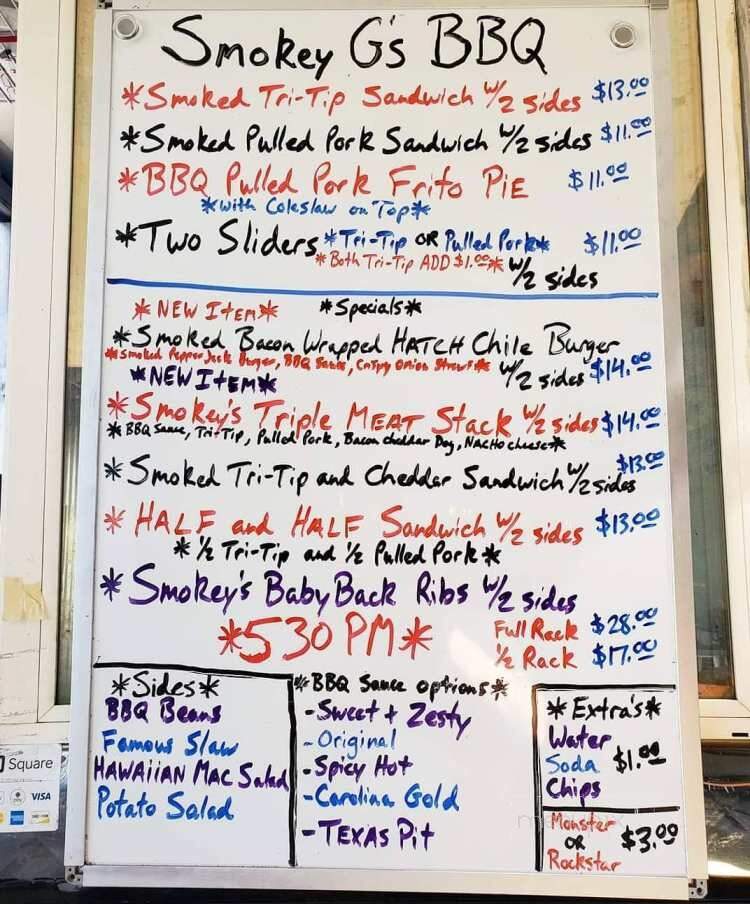 Smokey G's BBQ
*Smoked Tri-Tip Sandwich w/2 sides $13.00
*Smoked Pulled Pork Sandwich w/2 sides $11.00
*BBQ Pulled Pork Frito Pie $11.00
*with Coleslaw on Top*
*Two Sliders *Tri-Tip OR Pulled Pork* $11.00
*Both Tri-Tip ADD $1.00* w/2 sides
*NEW ITEM* *Specials*
*Smoked Bacon Wrapped HATCH Chile Burger
*Smoked Pepper Jack Burger, BBQ Sauce, Crispy Onion Straws* w/2 sides $14.00
*NEW ITEM*
*Smokey's Triple MEAT Stack w/2 sides $14.00
*BBQ Sauce, Tri-Tip, Pulled Pork, Bacon Cheddar Dog, Nacho cheese*
*Smoked Tri-Tip and Cheddar Sandwich w/2 sides $13.00
*HALF and HALF Sandwich w/2 sides $13.00
*½ Tri-Tip and ½ Pulled Pork*
*Smokey's Baby Back Ribs w/2 sides
*530 PM* Full Rack $28.00
½ Rack $17.00
*Sides*
BBQ Beans
Famous Slaw
HAWAIIAN Mac Salad
Potato Salad
*BBQ Sauce options*
-Sweet + Zesty
-Original
-Spicy Hot
-Carolina Gold
-TEXAS Pit
*Extra's*
Water
Soda $1.00
Chips
Monster
OR $3.00
Rockstar
Square
VISA